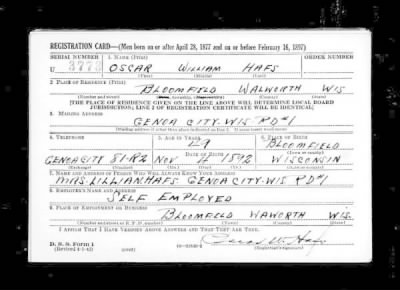 REGISTRATION CARD—(Men born on or after April 28, 1877 and on or before February 16, 1897)
SERIAL NUMBER 1. NAME (Print) ORDER NUMBER
U 3773 OSCAR WILLIAM HAFS
(First) (Middle) (Last)
2. PLACE OF RESIDENCE (Print)
BLOOMFIELD WALWORTH WIS
(Number and street) (Town, township, village, or city) (County) (State)
[THE PLACE OF RESIDENCE GIVEN ON THE LINE ABOVE WILL DETERMINE LOCAL BOARD
JURISDICTION; LINE 2 OF REGISTRATION CERTIFICATE WILL BE IDENTICAL]
3. MAILING ADDRESS
GENOA CITY-WIS RD#1
[Mailing address if other than place indicated on line 2. If same insert word same]
4. TELEPHONE 5. AGE IN YEARS 6. PLACE OF BIRTH
49 BLOOMFIELD
DATE OF BIRTH (Town or county)
GENOA CITY 51-R2 NOV 4 1892 WISCONSIN
(Exchange) (Number) (Mo.) (Day) (Yr.) (State or country)
7. NAME AND ADDRESS OF PERSON WHO WILL ALWAYS KNOW YOUR ADDRESS
MRS. LILLIAN HAFS GENOA CITY-WIS RD#1
8. EMPLOYER'S NAME AND ADDRESS
SELF EMPLOYED
9. PLACE OF EMPLOYMENT OR BUSINESS
BLOOMFIELD WAWORTH WIS.
(Number and street or R. F. D. number) (Town) (County) (State)
I AFFIRM THAT I HAVE VERIFIED ABOVE ANSWERS AND THAT THEY ARE TRUE.
D. S. S. Form 1
(Revised 4-1-42) (over)
Oscar W. Hafs
(Registrant's signature)